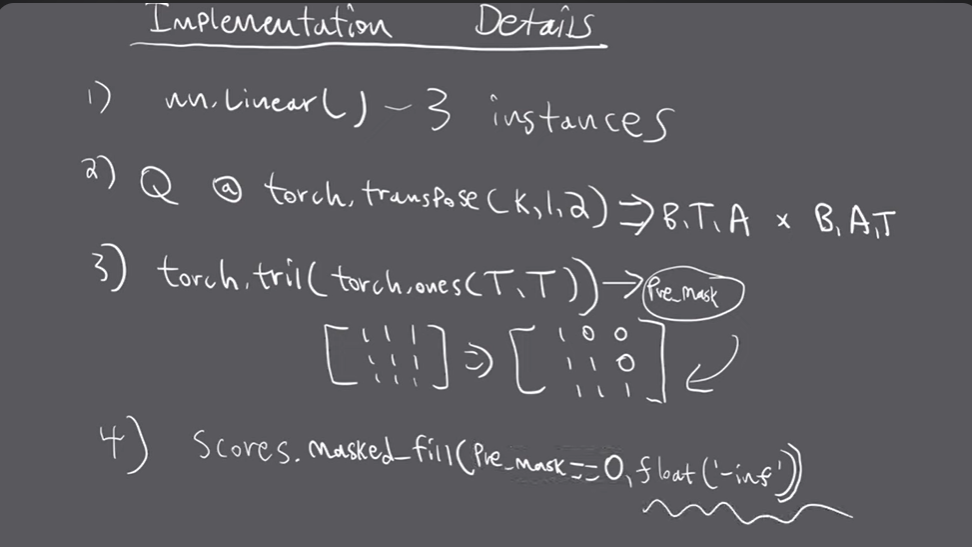 Implementation Details
1) nn.Linear() - 3 instances
2) Q @ torch.transpose(K,1,2) ⇒ B,T,A x B,A,T
3) torch.tril(torch.ones(T,T)) → Pre_mask
[ 1 1 1 ⇒ [ 1 0 0
1 1 1 1 1 0
1 1 1 ] 1 1 1 ]
4) Scores.masked_fill(Pre_mask==0, float('-inf'))